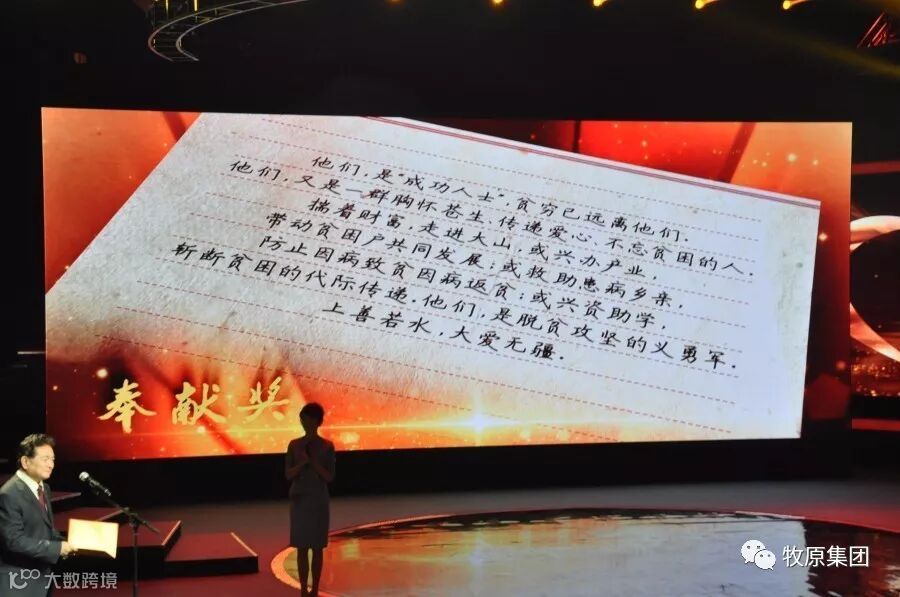 他们，是“成功人士”，贫穷已远离他们．
他们，又是一群胸怀苍生、传递爱心、不忘贫困的人．
揣着财富，走进大山，或兴办产业，
带动贫困户共同发展；或救助患病乡亲，
防止因病致贫因病返贫；或兴资助学，
斩断贫困的代际传递．他们，是脱贫攻坚的义勇军．
上善若水，大爱无疆．
奉献奖
牧原集团
大数跨境